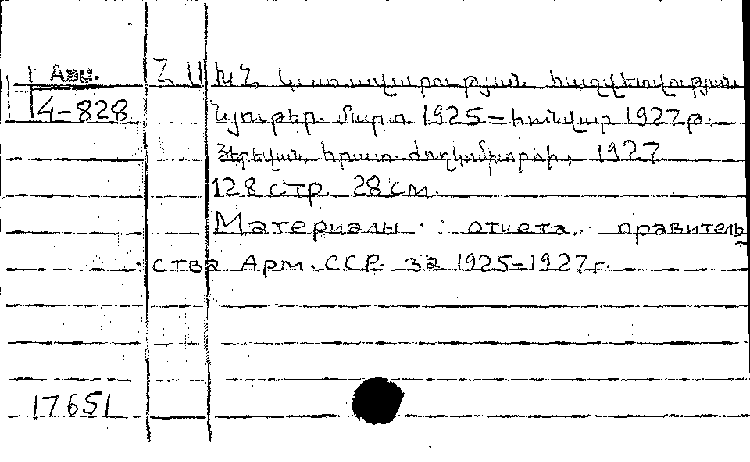 Арм. Հ Ս Խ Հ կառավարության հաշվետվության
4-828 Նյութեր. մարտ 1925-հունվար 1927թ.
Յերեվան, հրատ. ժողկոմխորհի, 1927
128 стр. 28 см.
Материалы отчета правитель
ства Арм. ССР. за 1925-1927г.
17651